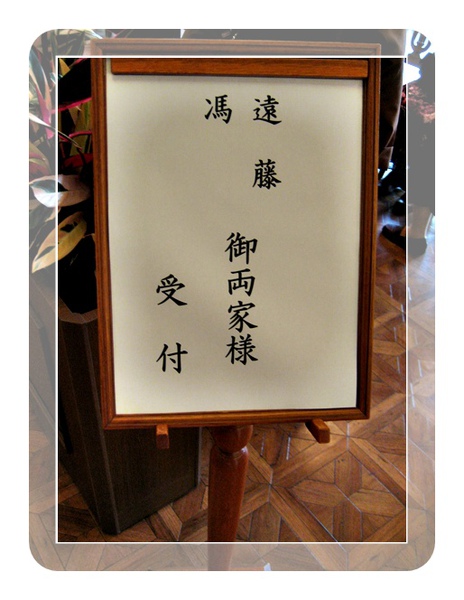 遠藤
馮
御両家様
受付